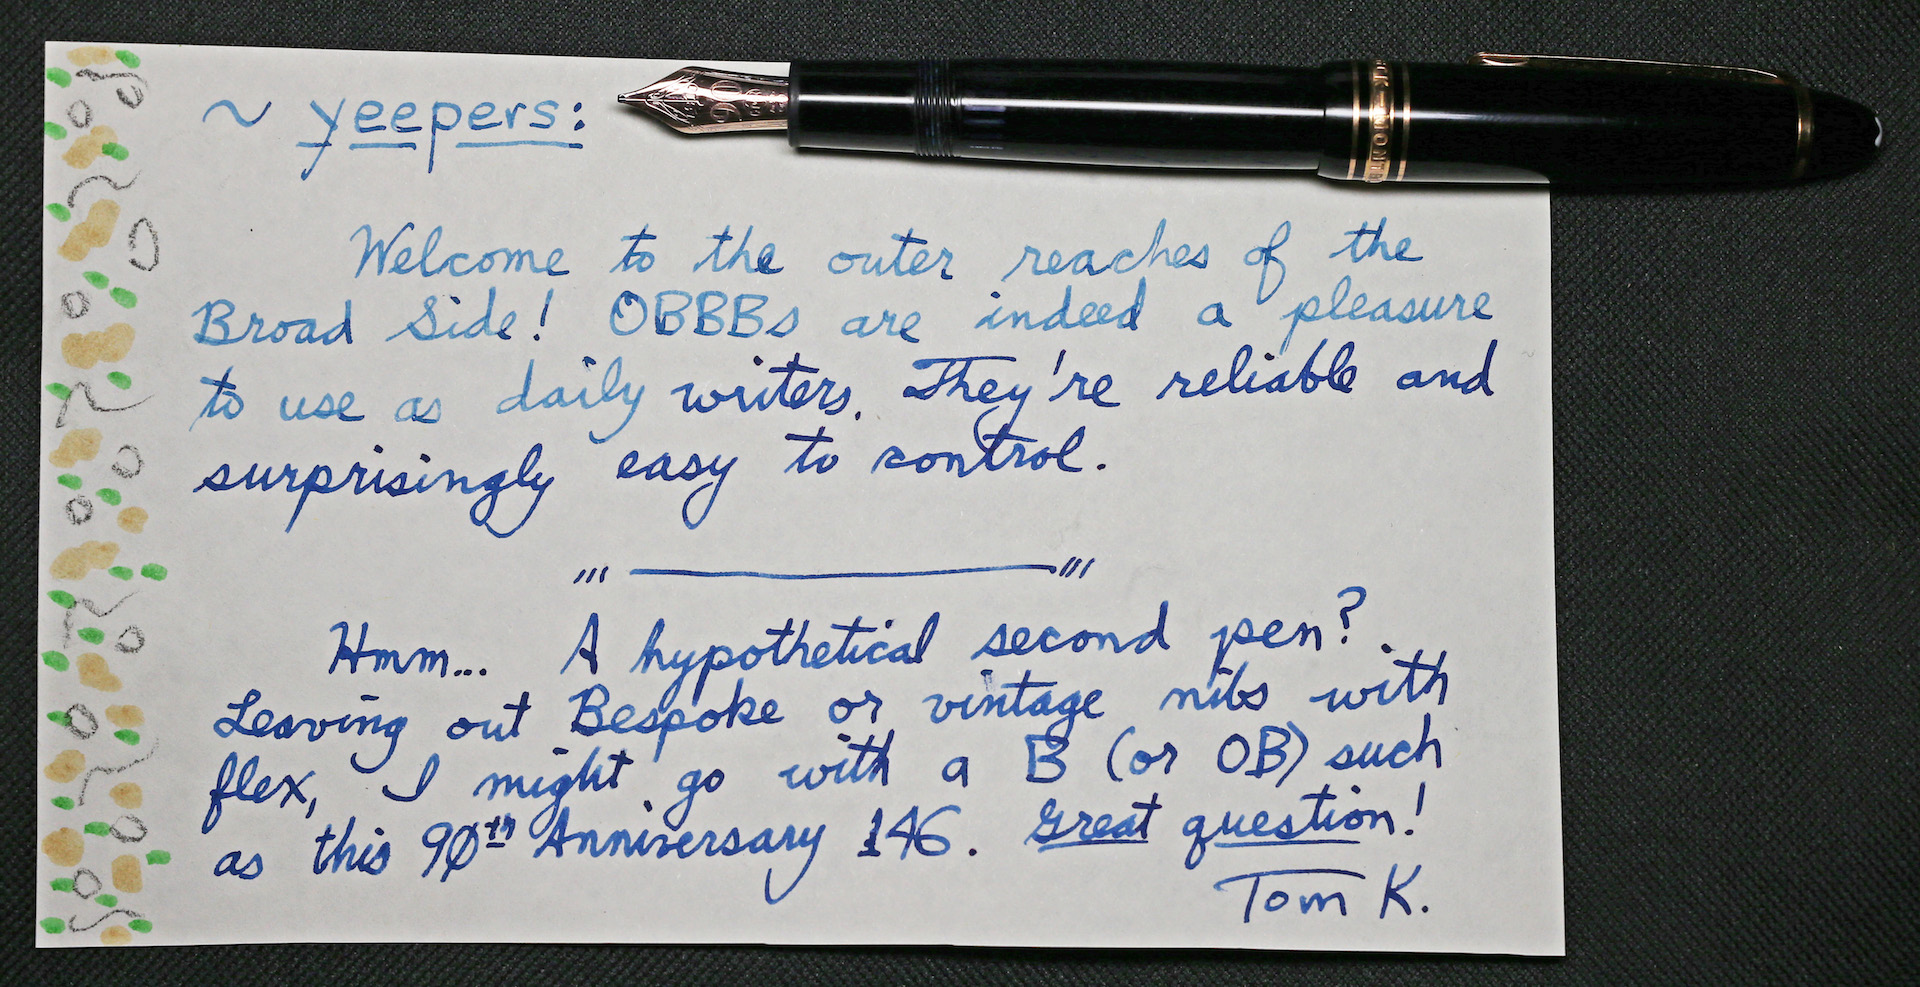 ~ yeepers:
Welcome to the outer reaches of the
Broad Side! OBBBs are indeed a pleasure
to use as daily writers. They're reliable and
surprisingly easy to control.
Hmm... A hypothetical second pen?
Leaving out Bespoke or vintage nibs with
flex, I might go with a B (or OB) such
as this 90th Anniversary 146. Great question!
Tom K.